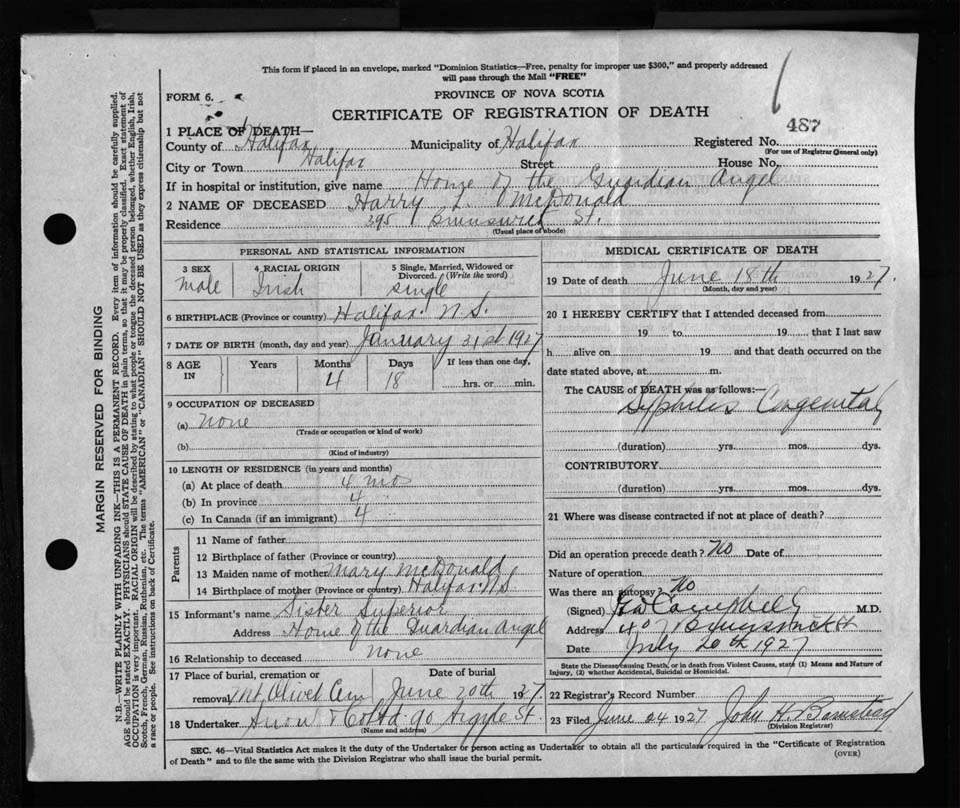 This form if placed in an envelope, marked "Dominion Statistics—Free, penalty for improper use $300," and properly addressed
will pass through the Mail "FREE"
FORM 6.
PROVINCE OF NOVA SCOTIA
CERTIFICATE OF REGISTRATION OF DEATH
1 PLACE OF DEATH—
County of Halifax Municipality of Halifax Registered No. 487
(For use of Registrar General only)
City or Town Halifax Street House No.
If in hospital or institution, give name Home of the Guardian Angel
2 NAME OF DECEASED Harry L. McDonald
Residence 395 Brunswick St.
(Usual place of abode)
PERSONAL AND STATISTICAL INFORMATION
3 SEX 4 RACIAL ORIGIN 5 Single, Married, Widowed or Divorced. (Write the word)
Male Irish single
6 BIRTHPLACE (Province or country) Halifax N.S.
7 DATE OF BIRTH (month, day and year) January 31st 1927
8 AGE IN Years Months 4 Days 18 If less than one day, hrs. or min.
9 OCCUPATION OF DECEASED
(a) none
(Trade or occupation or kind of work)
(b)
(Kind of industry)
10 LENGTH OF RESIDENCE (in years and months)
(a) At place of death 4 mos
(b) In province 4 "
(c) In Canada (if an immigrant) 4 "
Parents
11 Name of father
12 Birthplace of father (Province or country)
13 Maiden name of mother Mary McDonald
14 Birthplace of mother (Province or country) Halifax N.S
15 Informant's name Sister Superior
Address Home of the Guardian Angel
16 Relationship to deceased none
17 Place of burial, cremation or removal Mt. Olivet Cem Date of burial June 20th 1927.
18 Undertaker Snow & Co Ltd 90 Argyle St.
(Name and address)
MEDICAL CERTIFICATE OF DEATH
19 Date of death June 18th 1927.
(Month, day and year)
20 I HEREBY CERTIFY that I attended deceased from
19 to 19 that I last saw
h alive on 19 and that death occurred on the
date stated above, at m.
The CAUSE of DEATH was as follows:—
Syphilis Congenital
(duration) yrs. mos. dys.
CONTRIBUTORY
(duration) yrs. mos. dys.
21 Where was disease contracted if not at place of death?
Did an operation precede death? No Date of
Nature of operation
Was there an autopsy? No
(Signed) Campbell M.D.
Address Brunswick St
Date July 20th 1927
State the Disease causing Death, or in death from Violent Causes, state (1) Means and Nature of
Injury, (2) whether Accidental, Suicidal or Homicidal.
22 Registrar's Record Number
23 Filed June 24 1927 John H. Barnstead
(Division Registrar)
SEC. 46—Vital Statistics Act makes it the duty of the Undertaker or person acting as Undertaker to obtain all the particulars required in the "Certificate of Registration
of Death" and to file the same with the Division Registrar who shall issue the burial permit.
(OVER)
MARGIN RESERVED FOR BINDING
N.B.—WRITE PLAINLY WITH UNFADING INK—THIS IS A PERMANENT RECORD. Every item of information should be carefully supplied.
AGE should be stated EXACTLY. PHYSICIANS should STATE CAUSE OF DEATH in plain terms, so that it may be properly classified. Exact statement of
OCCUPATION is very important. RACIAL ORIGIN will be described by stating to what people or tongue the deceased person belonged, whether English, Irish,
Scotch, French, German, Russian, Ruthenian, etc. The terms "AMERICAN" or "CANADIAN" SHOULD NOT BE USED as they express citizenship but not
a race or people. See instructions on back of Certificate.